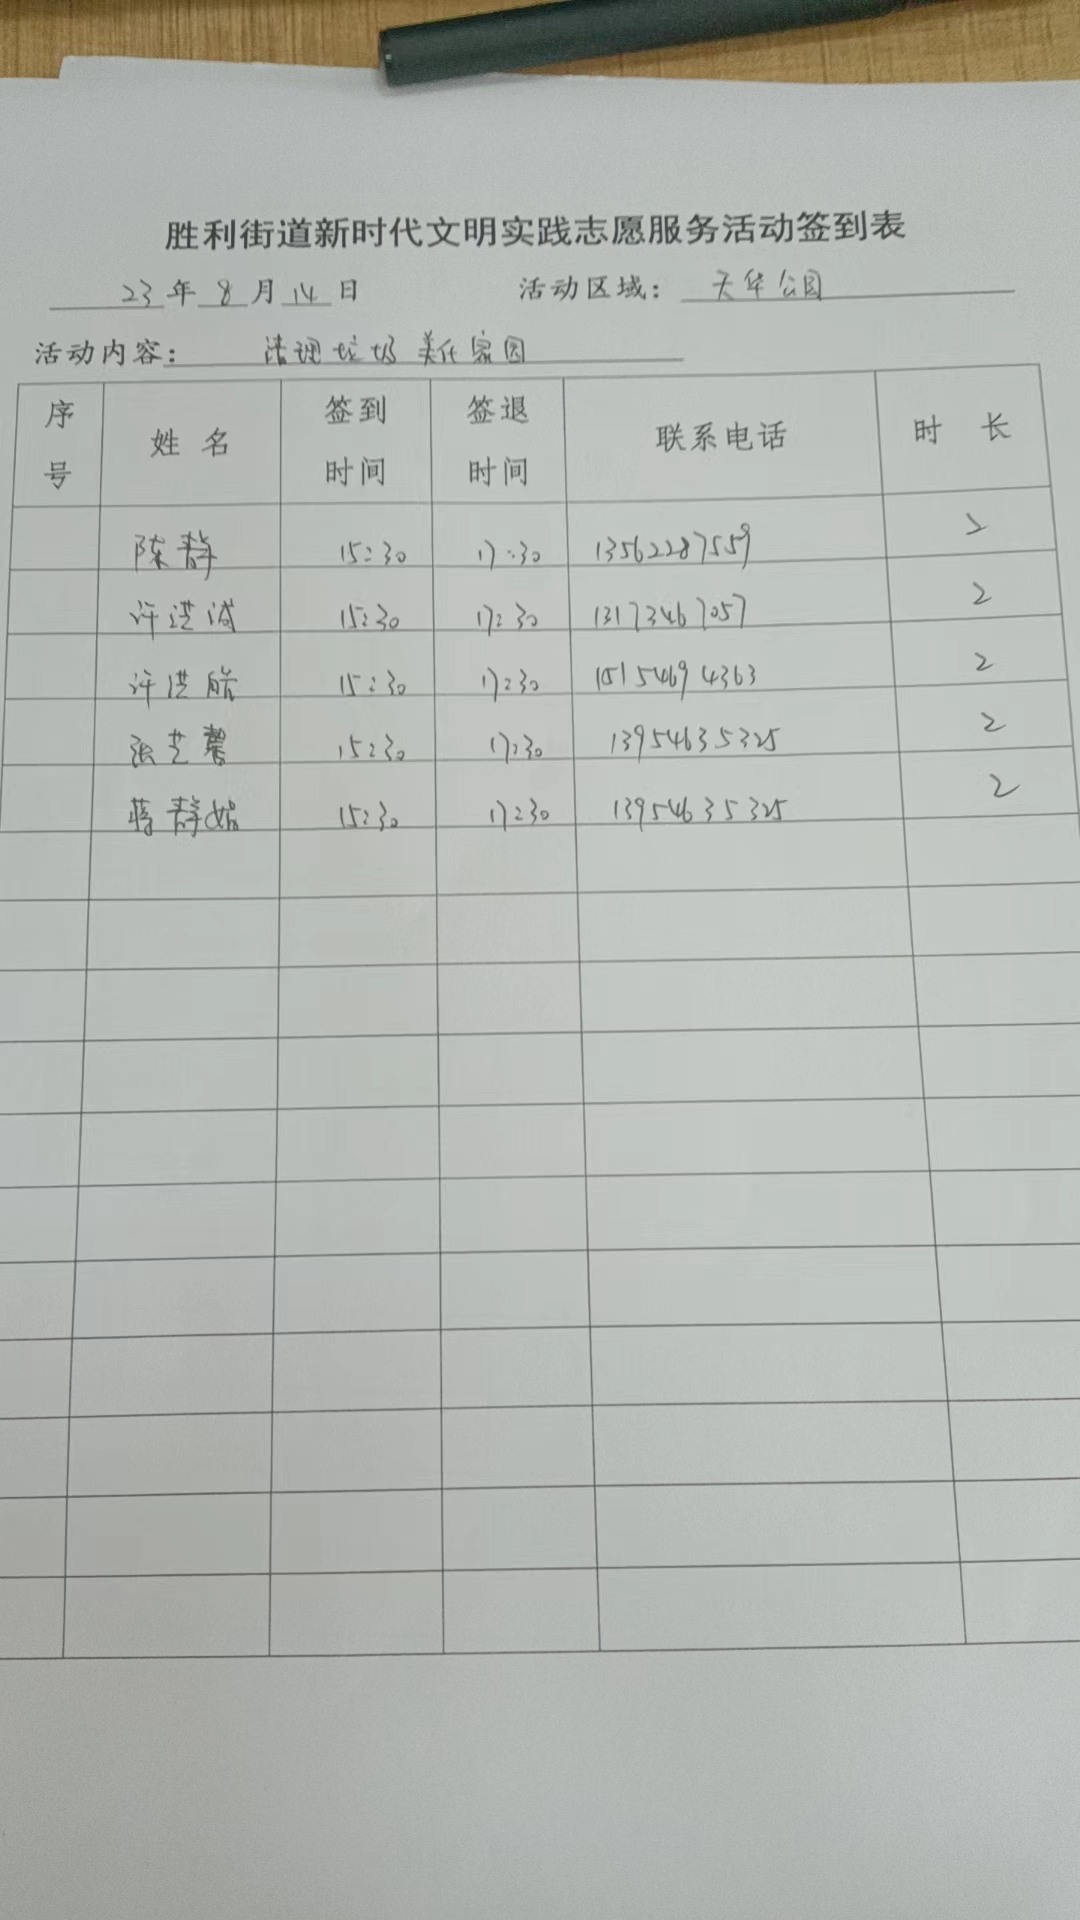 胜利街道新时代文明实践志愿服务活动签到表
23年8月14日 活动区域：天华公园
活动内容：清理垃圾 美化家园
序号 姓名 签到时间 签退时间 联系电话 时长
陈静 15:30 17:30 13562287559 2
许洪诚 15:30 17:30 13173467057 2
许洪皓 15:30 17:30 15154694363 2
张艺馨 15:30 17:30 13954635325 2
蒋静娴 15:30 17:30 13954635325 2